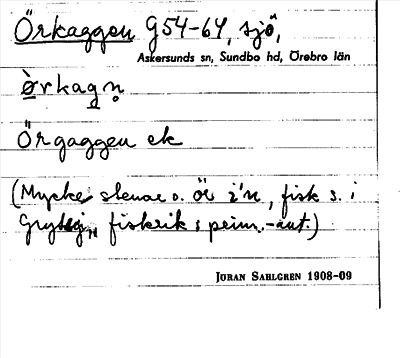 Örkaggen G54-64, sjö,
Askersunds sn, Sundbo hd, Örebro län
ò̱rkag̱n̥
Örgaggen ek
(Mycke stenar o. ör i'n, fisk s. i
fiskrik ; peim.-aut.)
JÖRAN SAHLGREN 1908-09